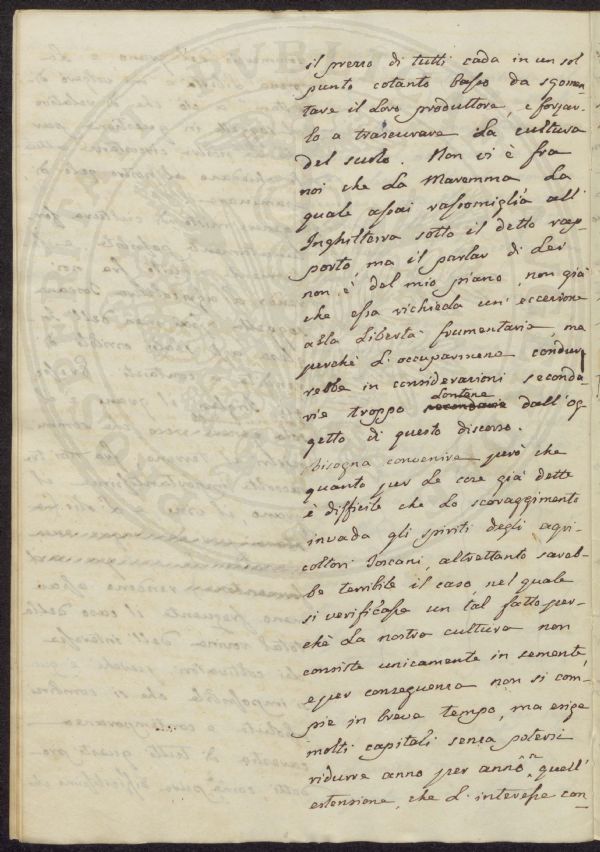 il prezzo di tutti cada in un sol
punto cotanto basso da sgomen-
tare il loro produttore, e forzar-
lo a trascurare la cultura
del suolo. Non vi è fra
noi che la Maremma la
quale assai rassomiglia all'
Inghilterra sotto il detto rap-
porto, ma il parlar di Lei
non è del mio piano, non già
che essa richieda un' eccezione
alla libertà frumentaria, ma
perchè l'occuparmene condur-
rebbe in considerazioni seconda-
rie troppo secondarie lontane dall'og-
getto di questo discorso.
Bisogna convenire però che
quanto per le cose già dette
è difficile che lo scoraggimento
invada gli spiriti degli agri-
coltori Toscani, altrettanto sareb-
be terribile il caso nel quale
si verificasse un tal fatto, per-
chè la nostra cultura non
consiste unicamente in semente,
e per conseguenza non si com-
pie in breve tempo, ma esige
molti capitali senza potersi
ridurre anno per anno a quell'
estensione, che l'interesse con-